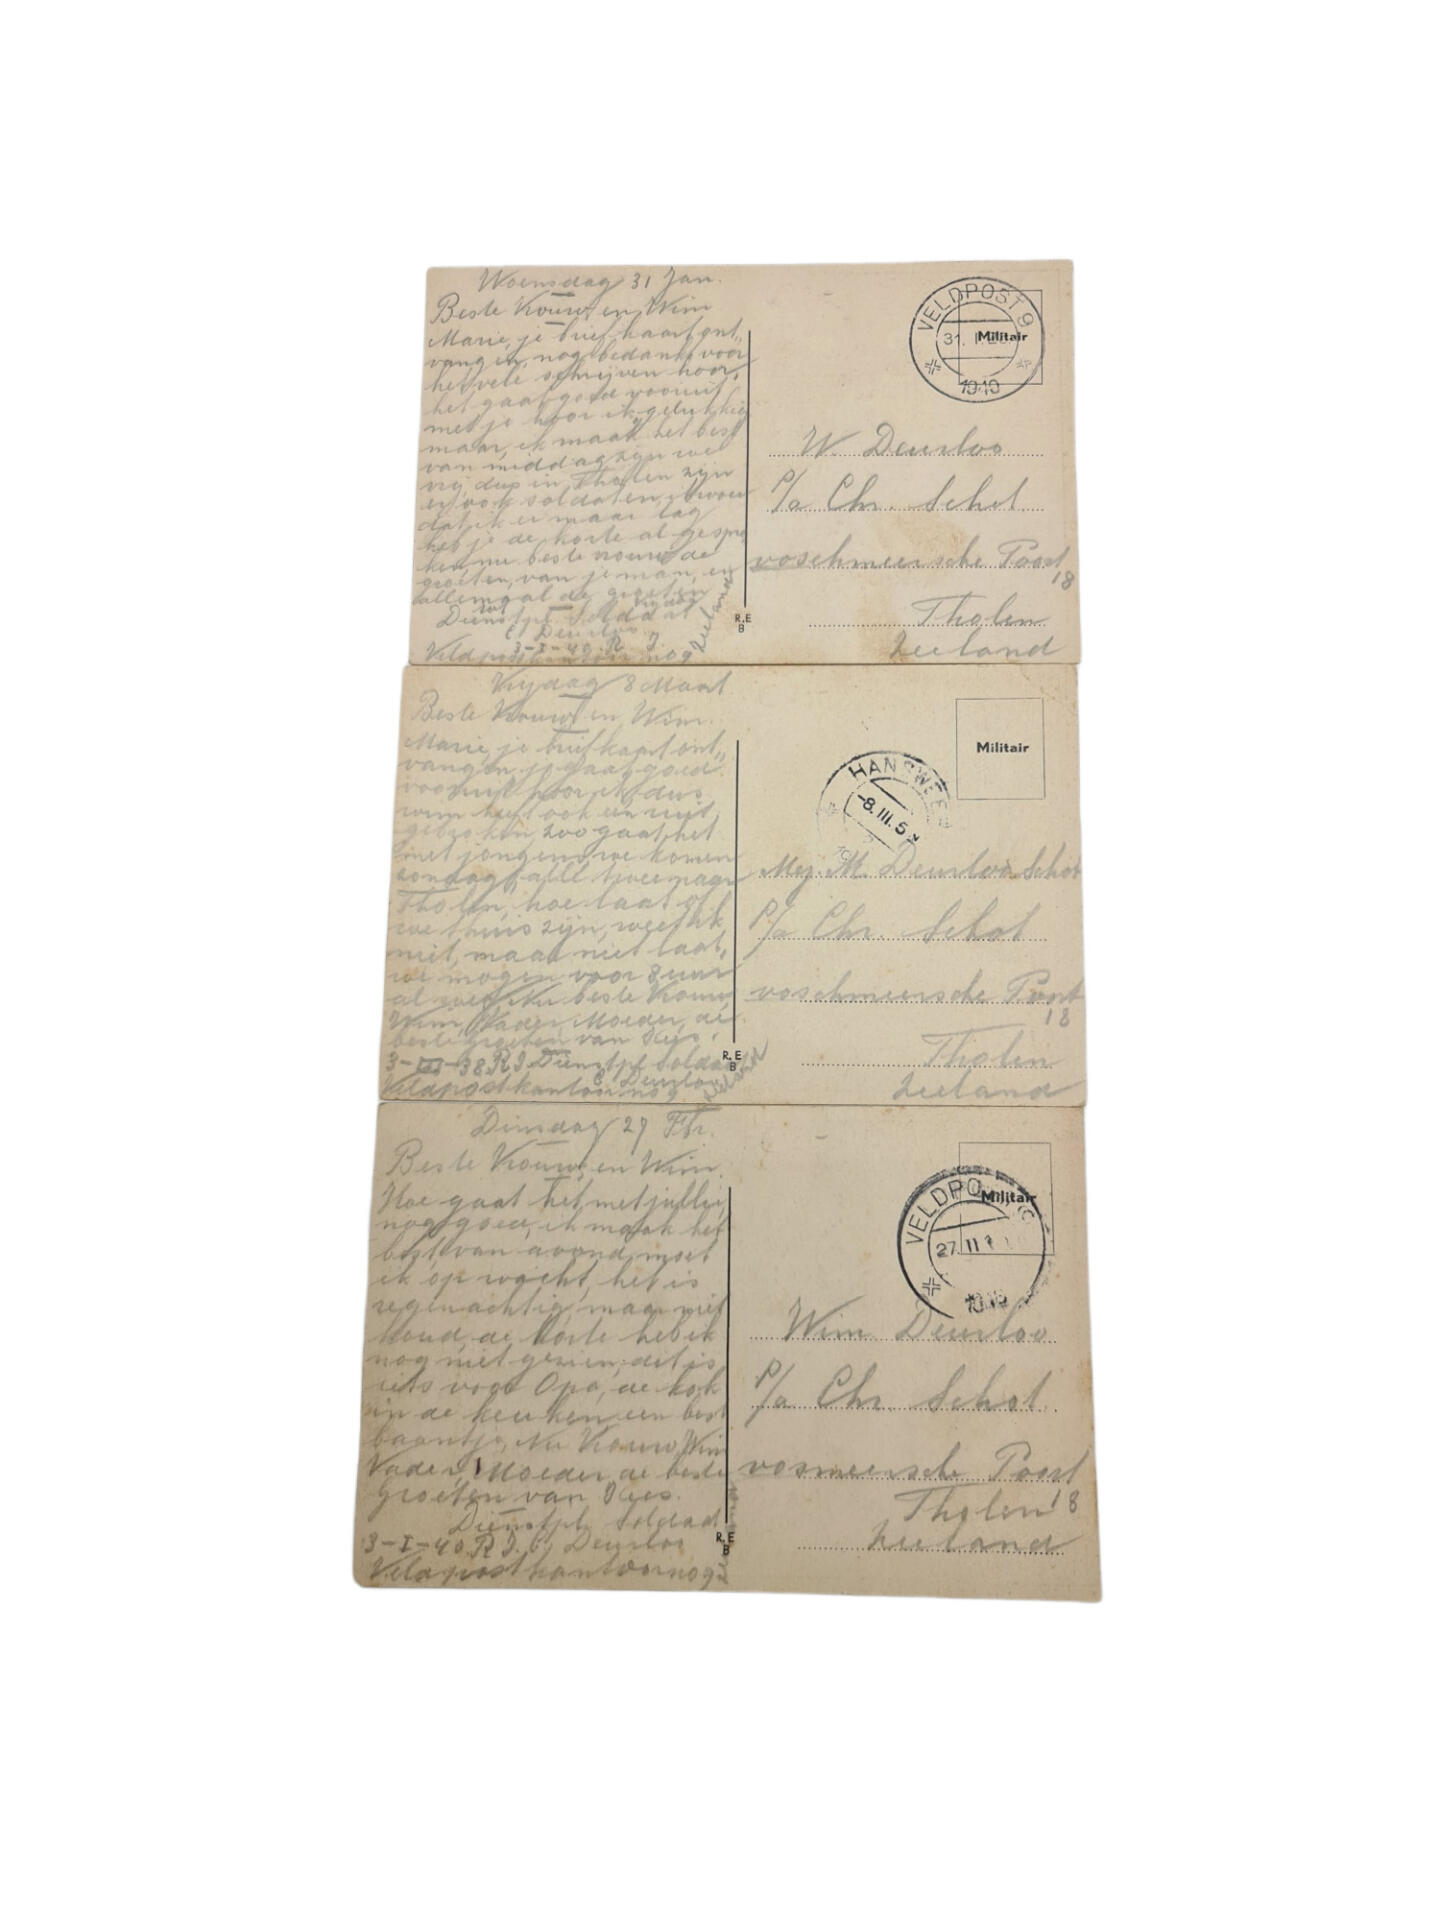 Woensdag 31 Jan.
Beste Vrouw, en Wim
Marie, je briefkaart ont„
vangen, nog bedankt voor
het vele schrijven hoor,
het gaat goed vooruit
met je hoor ik gelukkig
maar, ik maak het best
van middag zijn we
vrij, dus in Tholen zijn
er ook soldaten, ik wou
dat ik er maar lag
heb je de korte al gespro
ken nu beste vrouw de
groeten, van je man, en
allemaal de groeten
Dienstpl. Soldaat
C Deurloo
3-I-40 R. I.
Veldpostkantoor no 9
Zeeland
VELDPOST 9
31. I
1940
Militair
W Deurloo
P/a Chr. Schot
voschmeersche Poort
18
Tholen
Zeeland
R.E
B
Vrijdag 8 Maart
Beste Vrouw, en Wim.
Marie, je briefkaart ont„
vangen, je gaat goed
vooruit hoor ik, dus
wim heeft ook een ruit
gebroken, zoo gaat het
met jongens we komen
zondag alle twee naar
Tholen, hoe laat of
we thuis zijn, weet ik
niet, maar niet laat,
we mogen voor 8 uur
al weg. Nu beste Vrouw,
Wim, Vader Moeder, de
beste groeten van Kees.
3-III-38 R I Dienstpl. Soldaat
C Deurloo
Veldpostkantoor no 9
Zeeland
HANSWEE
-8.III.5
Militair
Mej. M. Deurloo Schot
P/a Chr. Schot
voschmeersche Poort
18
Tholen
Zeeland
R.E
B
Dinsdag 27 Fbr.
Beste Vrouw, en Wim.
Hoe gaat het, met jullie,
nog goed, ik maak het
best, van avond, moet
ik op wacht, het is
regenachtig, maar niet
koud, de Korte heb ik
nog niet gezien, dit is
iets voor Opa, de kok
in de keuken, een best
baantje, Nu Vrouw, Wim
Vader, Moeder, de beste
groeten van Kees.
Dienstpl Soldaat
3-I-40 R I. C Deurloo
Veldpostkantoor no 9
VELDPO
27. II
1940
Militair
Wim Deurloo
P/a Chr. Schot
vosmeersche Poort
18
Tholen
Zeeland
R.E
B